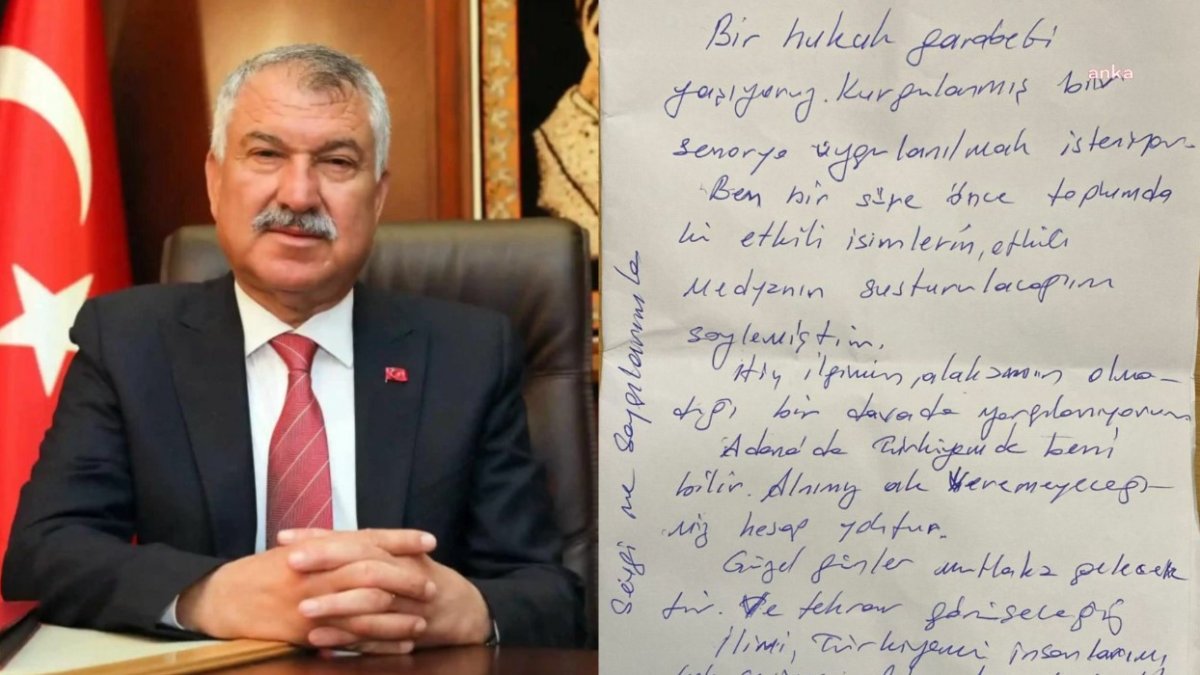 anka
Bir hukuk garabeti
yaşıyoruz. Kurgulanmış bir
senaryo uygulanılmak isteniyor.
Ben bir süre önce toplumda
ki etkili isimlerin, etkili
medyanın susturulacağını
söylemiştim.
Hiç ilgimin, alakamın olma-
dığı bir davada yargılanıyorum
Adana'da Türkiyemde beni
bilir. Alnımız ak veremeyeceği-
miz hesap yoktur.
Güzel günler mutlaka gelecek
tir. Ve tekrar görüşeceğiz
İlimi, Türkiyemi insanlarımı,
Sevgi ve Saygılarımla